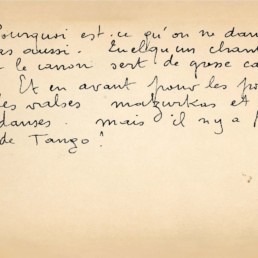 Pourquoi est-ce qu'on ne dan
as aussi. Quelqu'un chan
le canon sert de grosse ca
Et en avant pour les po
les valses mazurkas et
danses. mais il n'y a
de Tango"